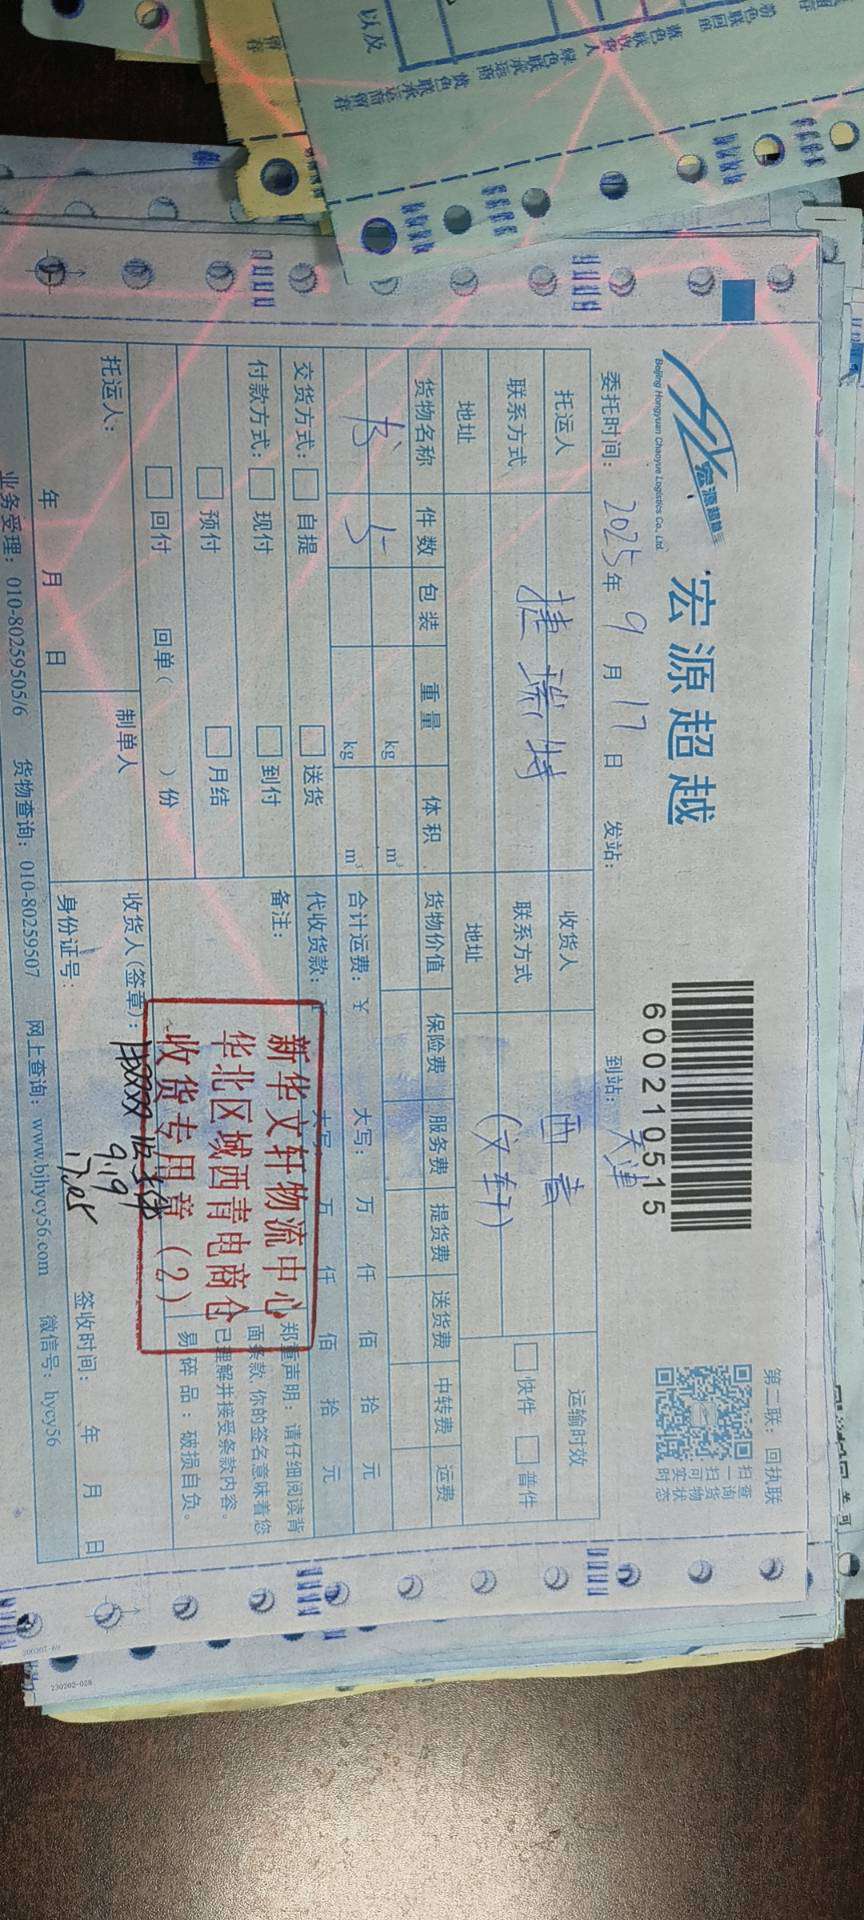 宏源超越
Beijing Hongyuan Chaoyue Logistics Co., Ltd.
宏源超越
600210515
第二联：回执联
扫一扫可实时
查询货物状态
委托时间：2025年9月17日 发站： 到站：天津
托运人 捷瑞特 收货人 西青 运输时效
联系方式 联系方式 （文轩） 快件 普件
地址 地址
货物名称 件数 包装 重量 体积 货物价值 保险费 服务费 提货费 送货费 中转费 运费
kg m³
书 5 kg m³ 合计运费：¥ 大写： 万 仟 佰 拾 元
交货方式： 自提 送货 代收货款：¥ 大写： 万 仟 佰 拾 元
付款方式： 现付 到付 备注：
预付 月结
回付 回单（ ）份
郑重声明：请仔细阅读背
面条款，你的签名意味着您
已理解并接受条款内容。
易碎品：破损自负。
新华文轩物流中心
华北区域西青电商仓
收货专用章（2）
托运人： 制单人 收货人（签章）：
9.19
17.05
年 月 日 身份证号： 签收时间： 年 月 日
业务受理：010-80259505/6 货物查询：010-80259507 网上查询：www.bjhycy56.com 微信号：hycy56
以及